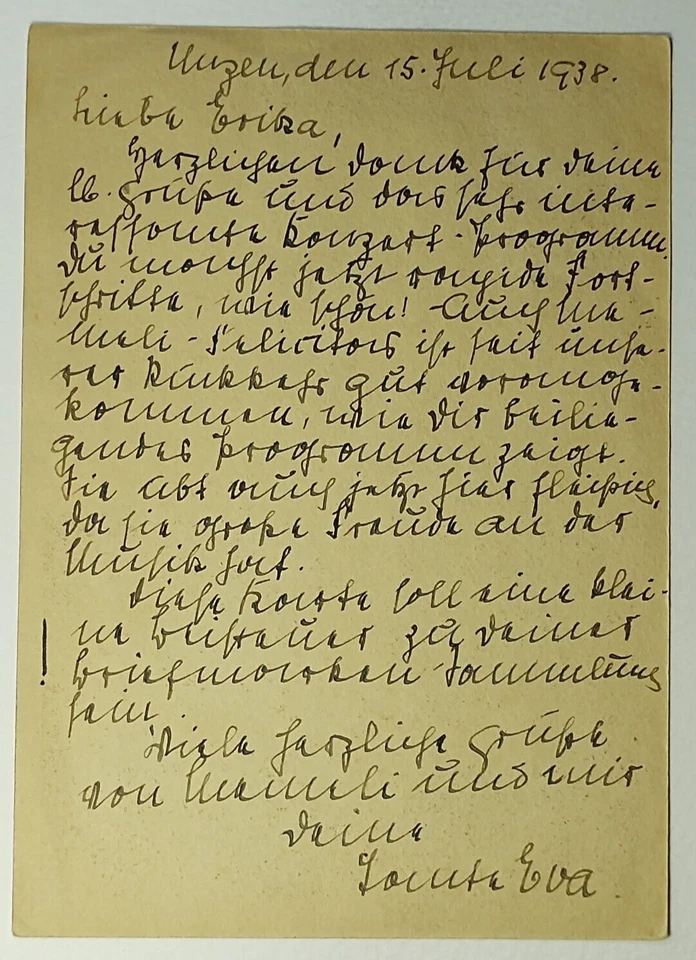 Unzen, den 15. Juli 1938.
Liebe Erika,
Herzlichen Dank für deine
lb. Grüße und das sehr inte-
ressante Konzert-Programm.
Du machst jetzt rapide Fort-
schritte, wie schön! Auch Me-
meli-Felicitas ist seit unse-
rer Rückkehr gut vorange-
kommen, wie dir beilie-
gendes Programm zeigt.
Sie übt auch jetzt hier fleißig,
da sie große Freude an der
Musik hat.
Diese Karte soll eine klei-
ne Beisteuer zu deiner
Briefmarken-Sammlung
sein.
Viele herzliche Grüße
von Memeli und mir
deine
Tante Eva.